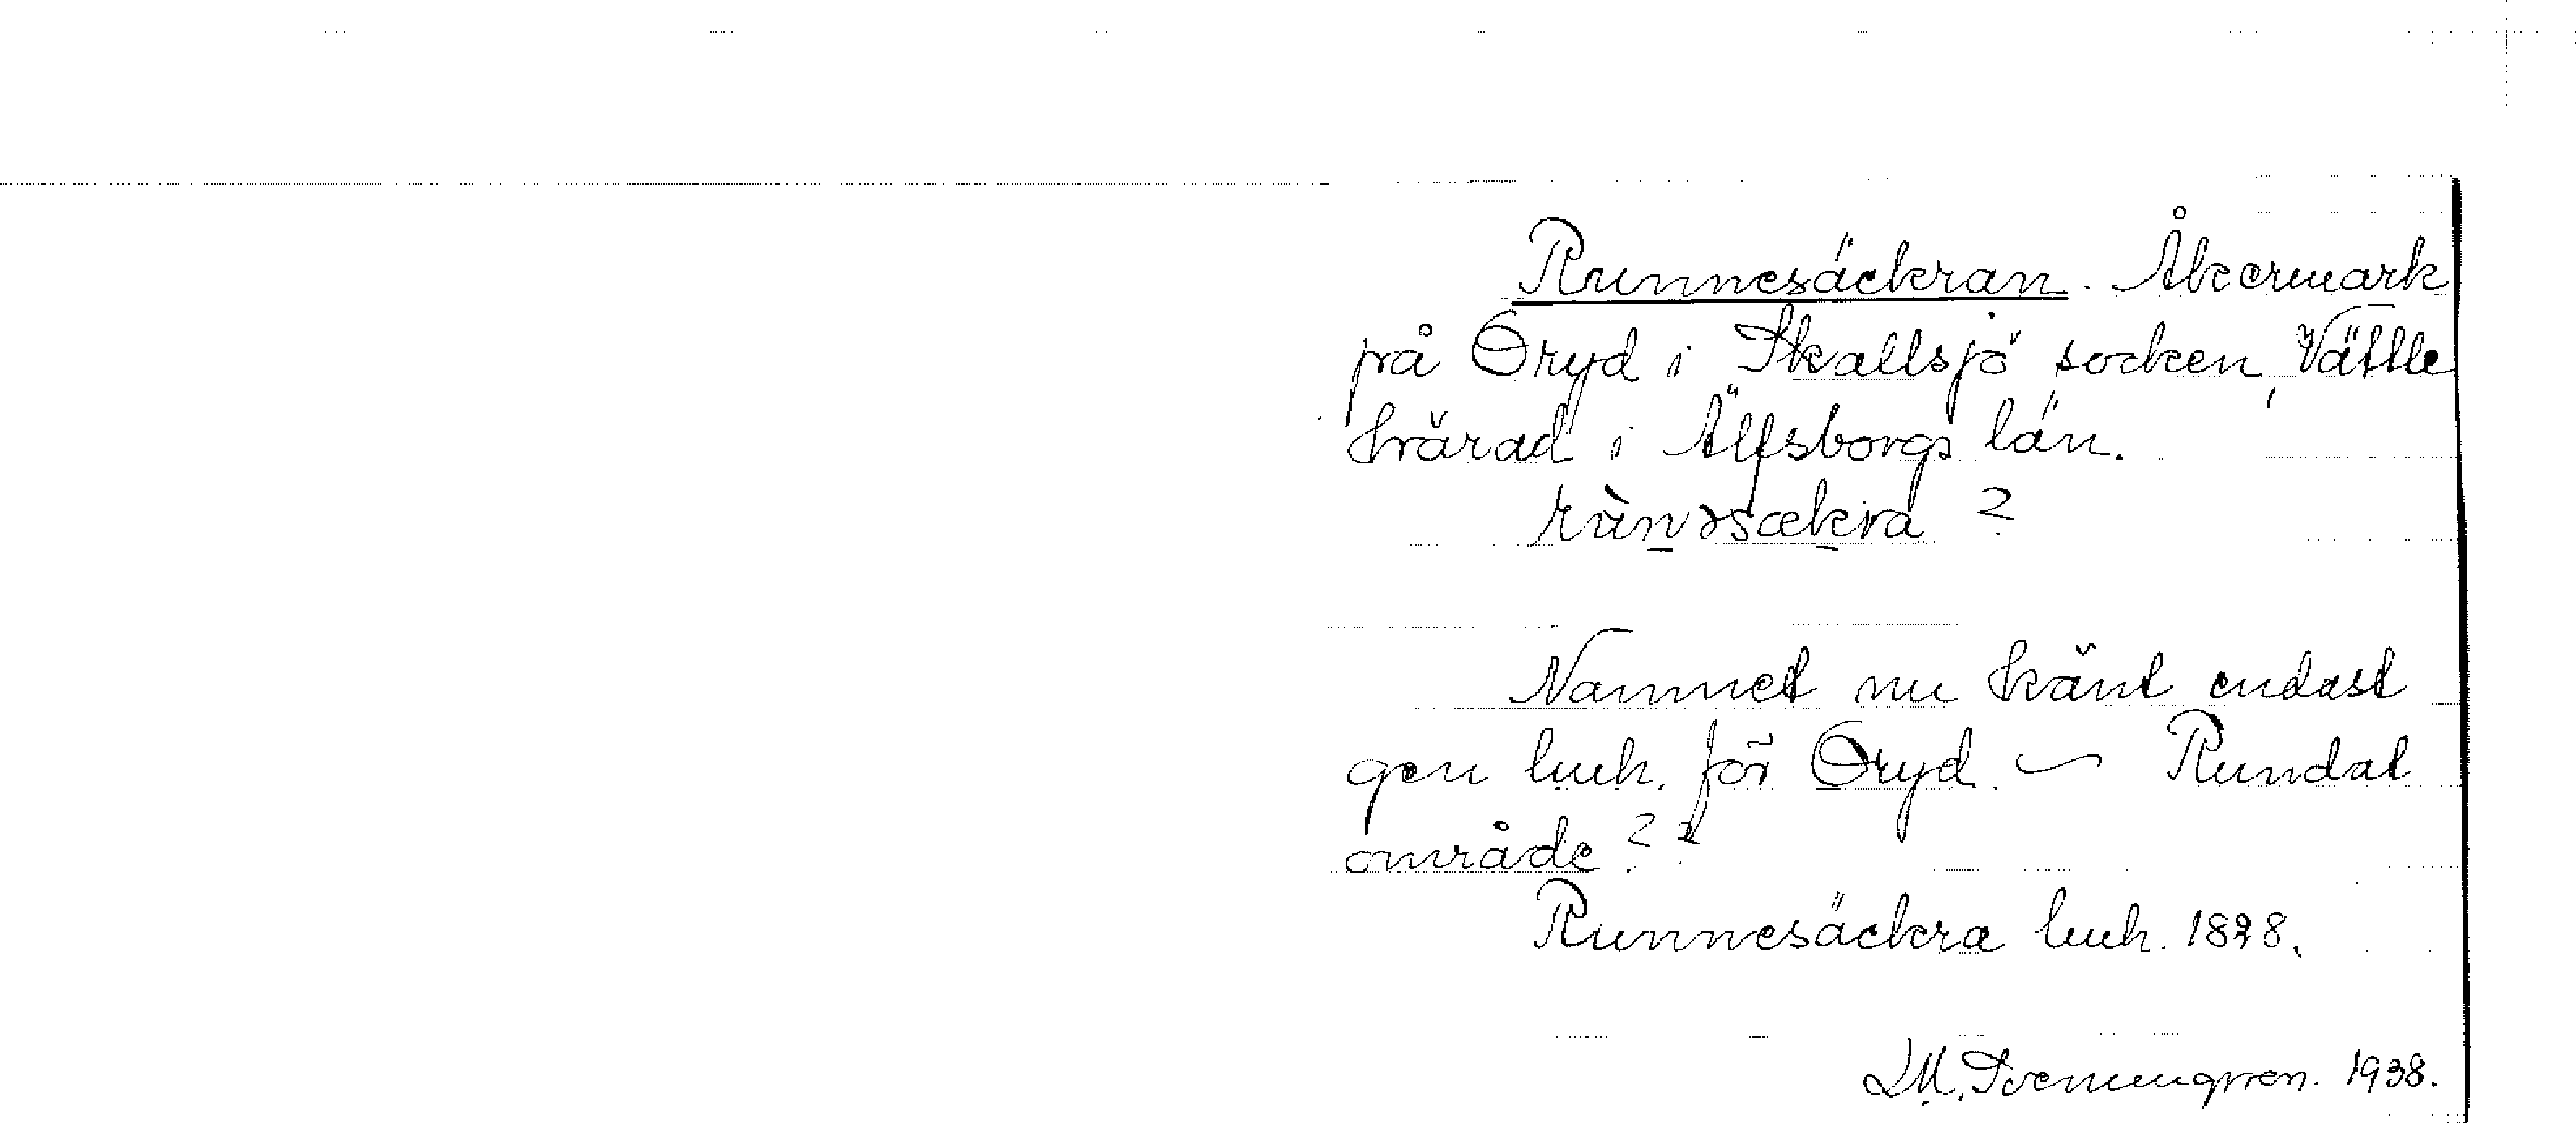 Runnesäckran. Åkermark
på Öryd i Skallsjö socken, Vättle
härad i Älfsborgs län.
rùn̲əsæk̲ra ?
Namnet nu känt endast
gen luch. för Öryd. ~ Rundat
område ? ?
Runnesäckra luch. 1828.
1938.